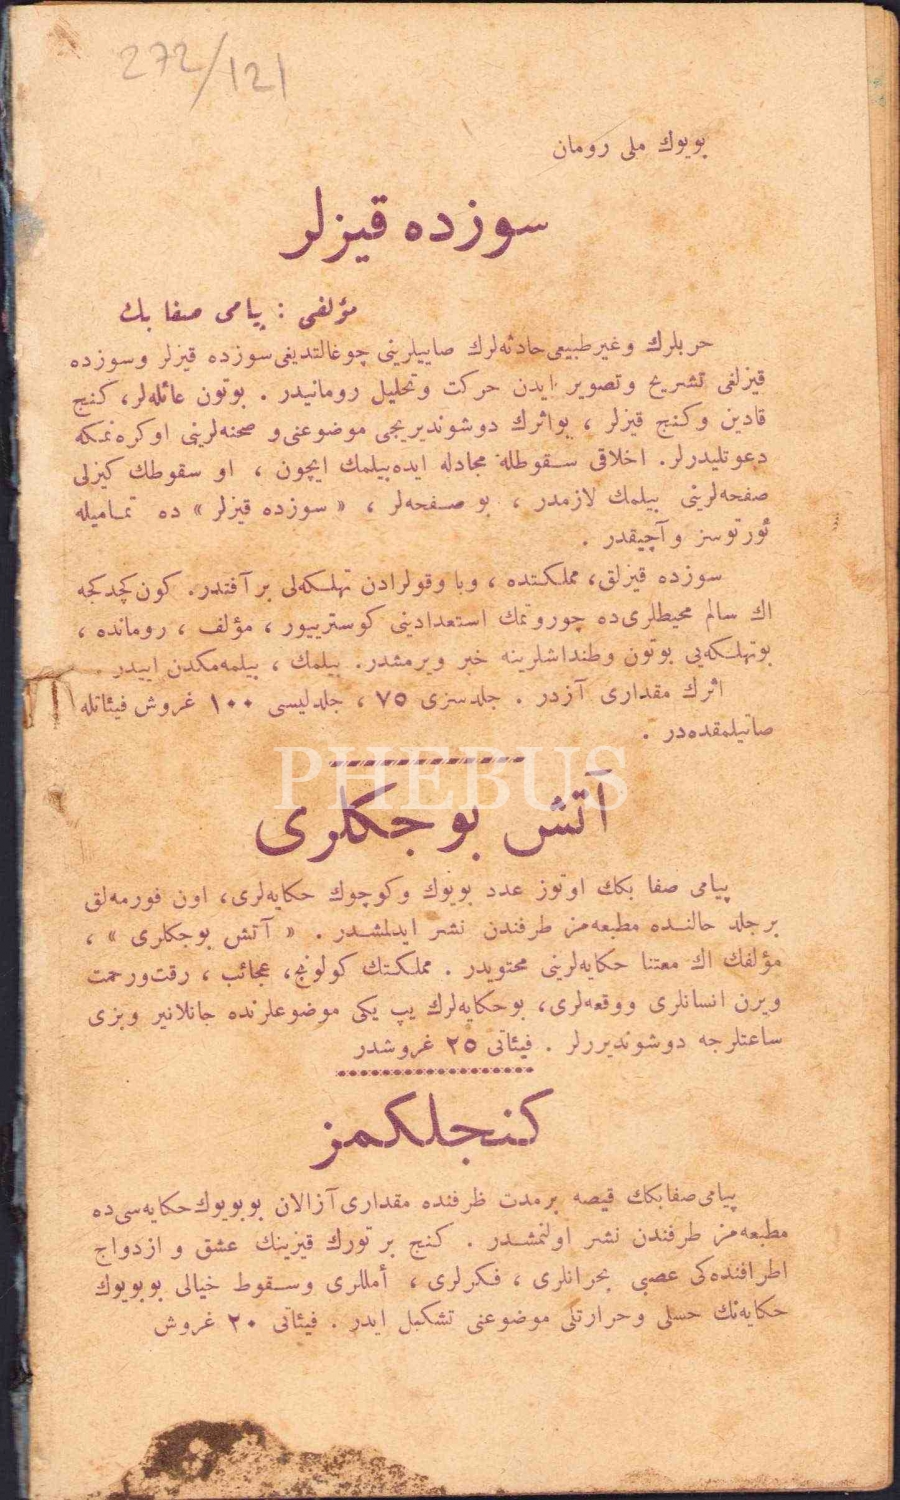 272/121
بویوك ملی رومان
سوزده قیزلر
مؤلفی : پیامی صفا بك
حربلرك وغیرطبیعی حادثه‌لرك صاییلرینی چوغالتدیغی سوزده قیزلر وسوزده
قیزلغی تشریح وتصویر ایدن حركت وتحلیل رومانیدر . بوتون عائله‌لر، كنج
قادین وكنج قیزلر ، بواثرك دوشوندیریجی موضوعنی و صحنه‌لرینی اوكره‌نمكه
دعوتلیدرلر. اخلاقی سقوطله مجادله ایده‌بیلمك ایچون ، او سقوطك كیزلی
صفحه‌لرینی بیلمك لازمدر ، بو صفحه‌لر ، « سوزده قیزلر » ده تمامیله
ئورتوسز و آچیقدر .
سوزده قیزلق، مملكتده ، وبا وقولرادن تهلكه‌لی بر آفتدر. كون كچدكجه
اك سالم محیطلری‌ده چوروتمك استعدادینی كوسترییور ، مؤلف ، رومانده ،
بوتهلكه‌یی بوتون وطنداشلرینه خبر ویرمشدر. بیلمك ، بیلمه‌مكدن اییدر .
اثرك مقداری آزدر . جلدسزی ٧٥ ، جلدلیسی ١٠٠ غروش فیئاتله
صاتیلمقده‌در .
PHEBUS
آتش بوجكلری
پیامی صفا بكك اوتوز عدد بویوك وكوچوك حكایه‌لری، اون فورمه‌لق
برجلد حالنده مطبعه‌مز طرفندن نشر ایدلمشدر . « آتش بوجكلری » ،
مؤلفك اك معتنا حكایه‌لرینی محتویدر . مملكتك كولونج، عجائب ، رقت‌ورحمت
ویرن انسانلری ووقعه‌لری، بوحكایه‌لرك یپ یكی موضوعلرنده جانلانیر وبزی
ساعتلرجه دوشوندیررلر . فیئاتی ٢٥ غروشدر
كنجلكمز
پیامی صفابكك قیصه برمدت ظرفنده مقداری آزالان بوبویوك حكایه‌سی‌ده
مطبعه‌مز طرفندن نشر اولنمشدر . كنج بر تورك قیزینك عشق و ازدواج
اطرافنده‌كی عصبی بحرانلری ، فكرلری ، أمللری وسقوط خیالی بوبویوك
حكایه‌نك حسلی وحرارتلی موضوعنی تشكیل ایدر . فیئاتی ٢٠ غروش